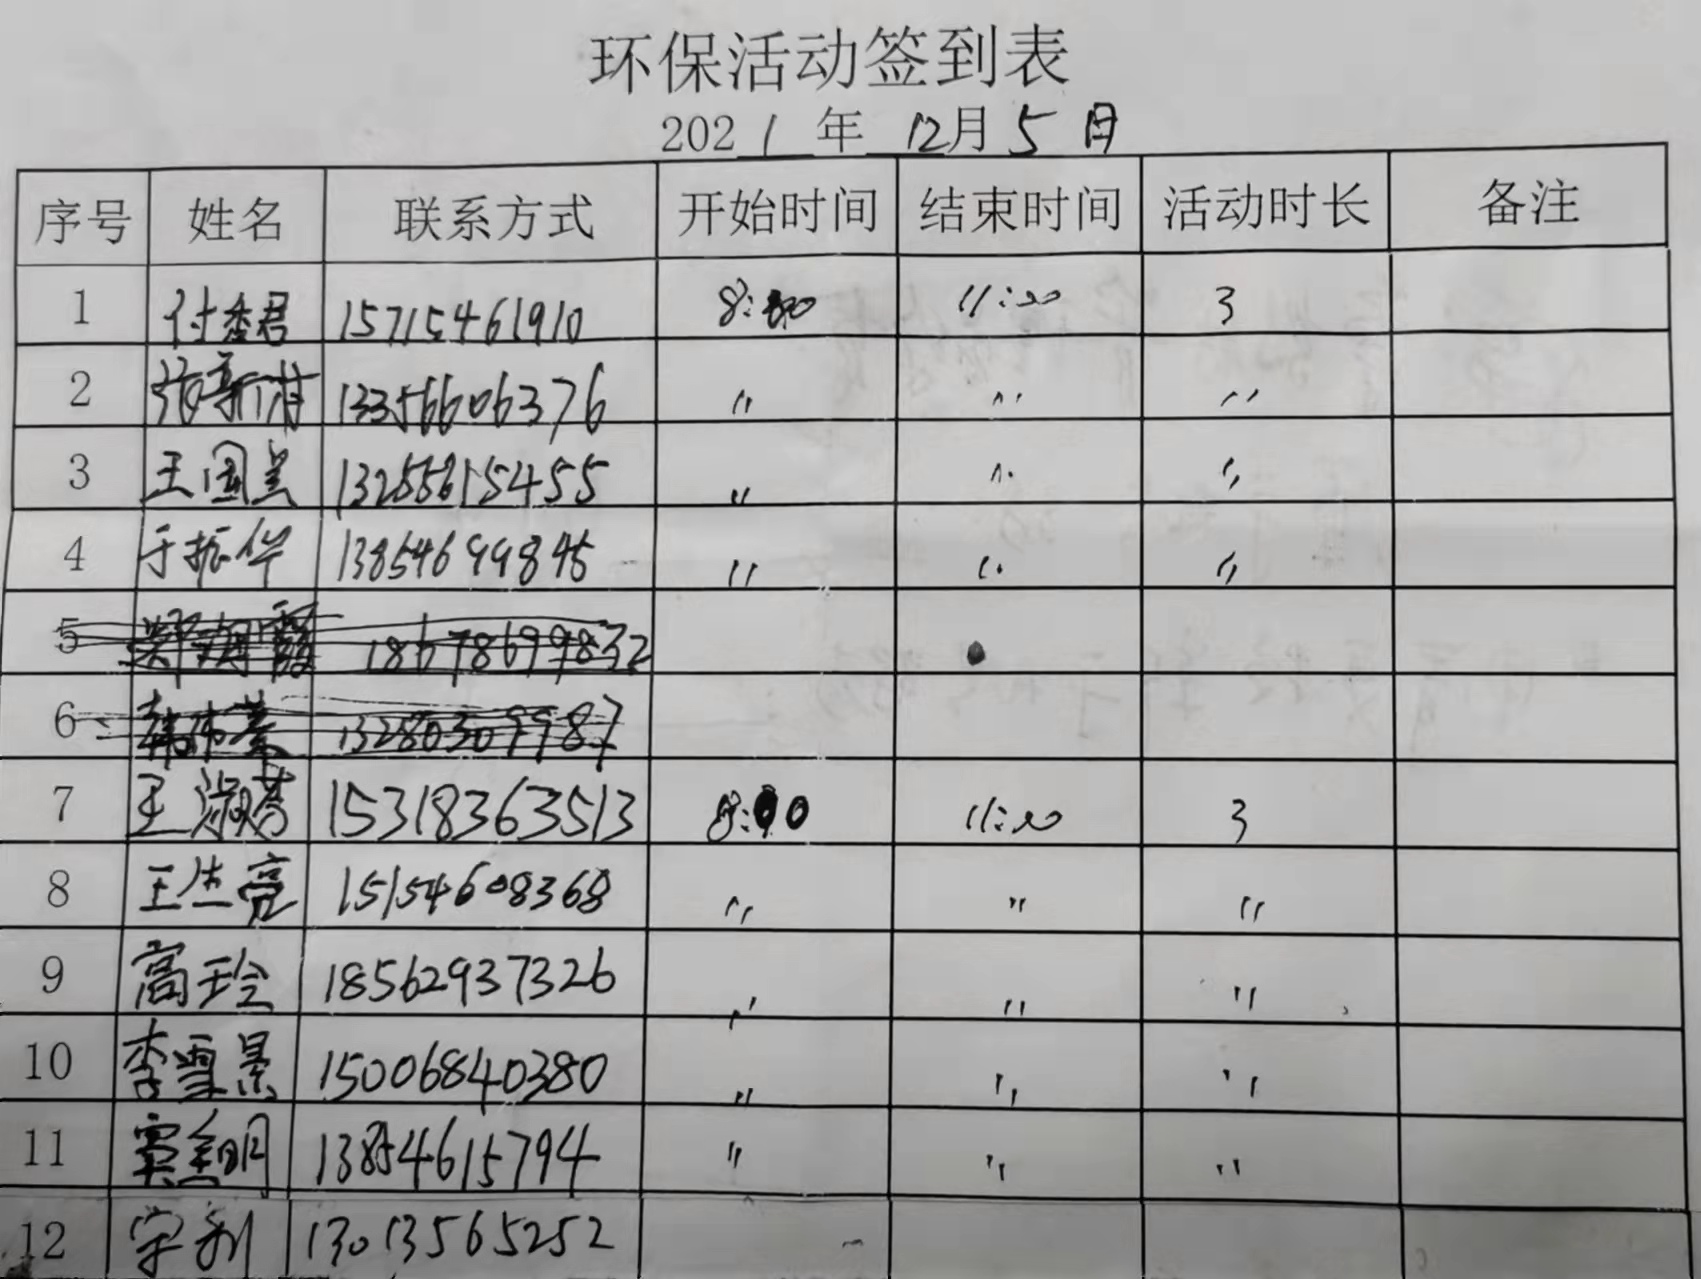 环保活动签到表
2021 年 12月5日
序号 姓名 联系方式 开始时间 结束时间 活动时长 备注
1 付秀君 15715461910 8:00 11:00 3
2 13356606376 〃 〃 〃
3 王国兰 〃 〃 〃
4 于振华 13854699845 〃 〃 〃
5 18678699832
6 13280309987
7 王淑芬 15318363513 8:00 11:00 3
8 王生亮 15154608368 〃 〃 〃
9 高玲 18562937326 〃 〃 〃
10 李雪景 15006840380 〃 〃 〃
11 13854615794 〃 〃 〃
12 宋利 13013565252